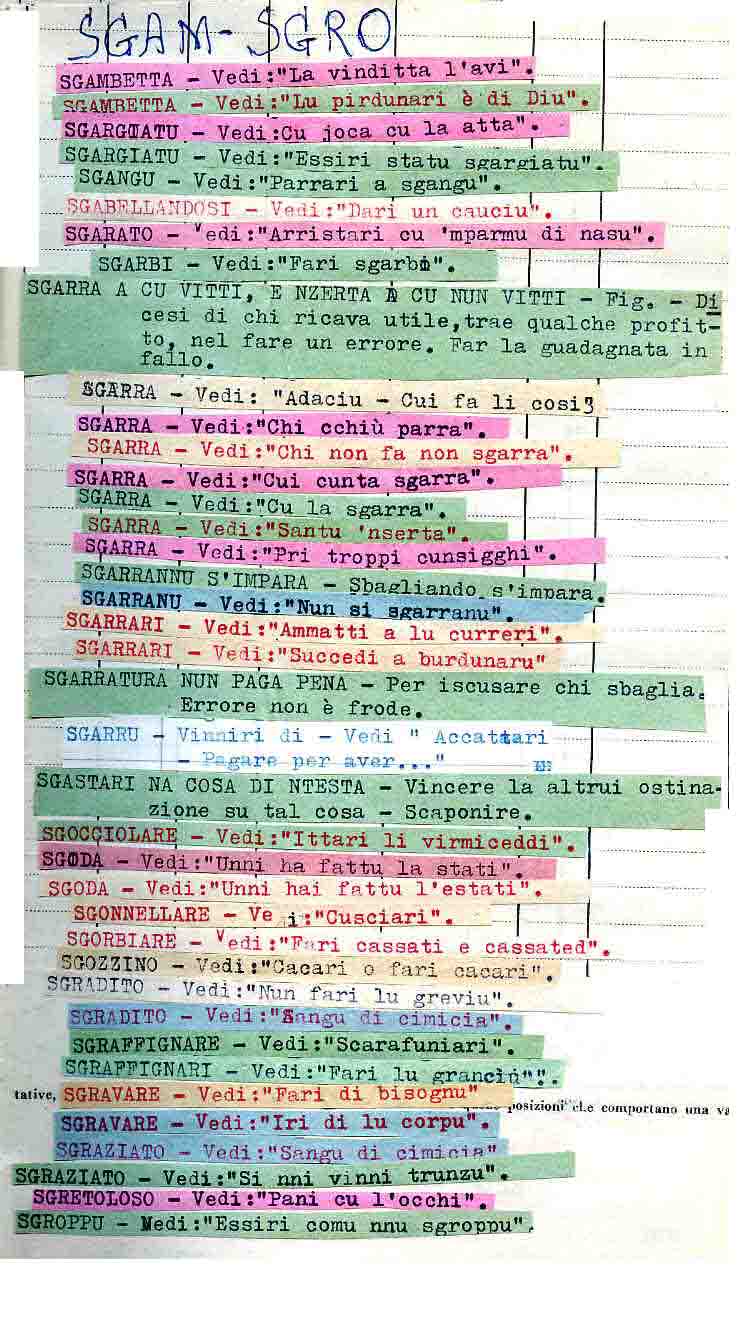 SGAM-SGRO
SGAMBETTA - Vedi:"La vinditta l'avi".
SGAMBETTA - Vedi:"Lu pirdunari è di Diu".
SGARGIATU - Vedi:Cu joca cu la atta".
SGARGIATU - Vedi:"Essiri statu sgargiatu".
SGANGU - Vedi:"Parrari a sgangu".
SGABELLANDOSI - Vedi:"Dari un cauciu".
SGARATO - Vedi:"Arristari cu 'mparmu di nasu".
SGARBI - Vedi:"Fari sgarbi".
SGARRA A CU VITTI, E NZERTA A CU NUN VITTI - Fig. - Di
cesi di chi ricava utile,trae qualche profit-
to, nel fare un errore. Far la guadagnata in
fallo.
SGARRA - Vedi: "Adaciu - Cui fa li cosi3
SGARRA - Vedi:"Chi cchiù parra".
SGARRA - Vedi:"Chi non fa non sgarra".
SGARRA - Vedi:"Cui cunta sgarra".
SGARRA - Vedi:"Cu la sgarra".
SGARRA - Vedi:"Santu 'nserta".
SGARRA - Vedi:"Pri troppi cunsigghi".
SGARRANNU S'IMPARA - Sbagliando s'impara.
SGARRANU - Vedi:"Nun si sgarranu".
SGARRARI - Vedi:"Ammatti a lu curreri".
SGARRARI - Vedi:"Succedi a burdunaru"
SGARRATURA NUN PAGA PENA - Per iscusare chi sbaglia.
Errore non è frode.
SGARRU - Vinniri di - Vedi " Accattari
- Pagare per aver..."
SGASTARI NA COSA DI NTESTA - Vincere la altrui ostina-
zione su tal cosa - Scaponire.
SGOCCIOLARE - Vedi:"Ittari li virmiceddi".
SGODA - Vedi:"Unni ha fattu la stati".
SGODA - Vedi:"Unni hai fattu l'estati".
SGONNELLARE - Ve i:"Cusciari".
SGORBIARE - Vedi:"Fari cassati e cassated".
SGOZZINO - Vedi:"Cacari o fari cacari".
SGRADITO - Vedi:"Nun fari lu greviu".
SGRADITO - Vedi:"Sangu di cimicia".
SGRAFFIGNARE - Vedi:"Scarafuniari".
SGRAFFIGNARI - Vedi:"Fari lu granciu".
tative, SGRAVARE - Vedi:"Fari di bisognu"
posizioni che comportano una va
SGRAVARE - Vedi:"Iri di lu corpu".
SGRAZIATO - Vedi:"Sangu di cimicia"
SGRAZIATO - Vedi:"Si nni vinni trunzu".
SGRETOLOSO - Vedi:"Pani cu l'occhi".
SGROPPU - Medi:"Essiri comu nnu sgroppu".